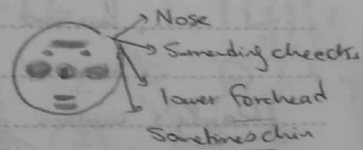 Nose
Surrending cheecks
lower forehead
Sometimes chin